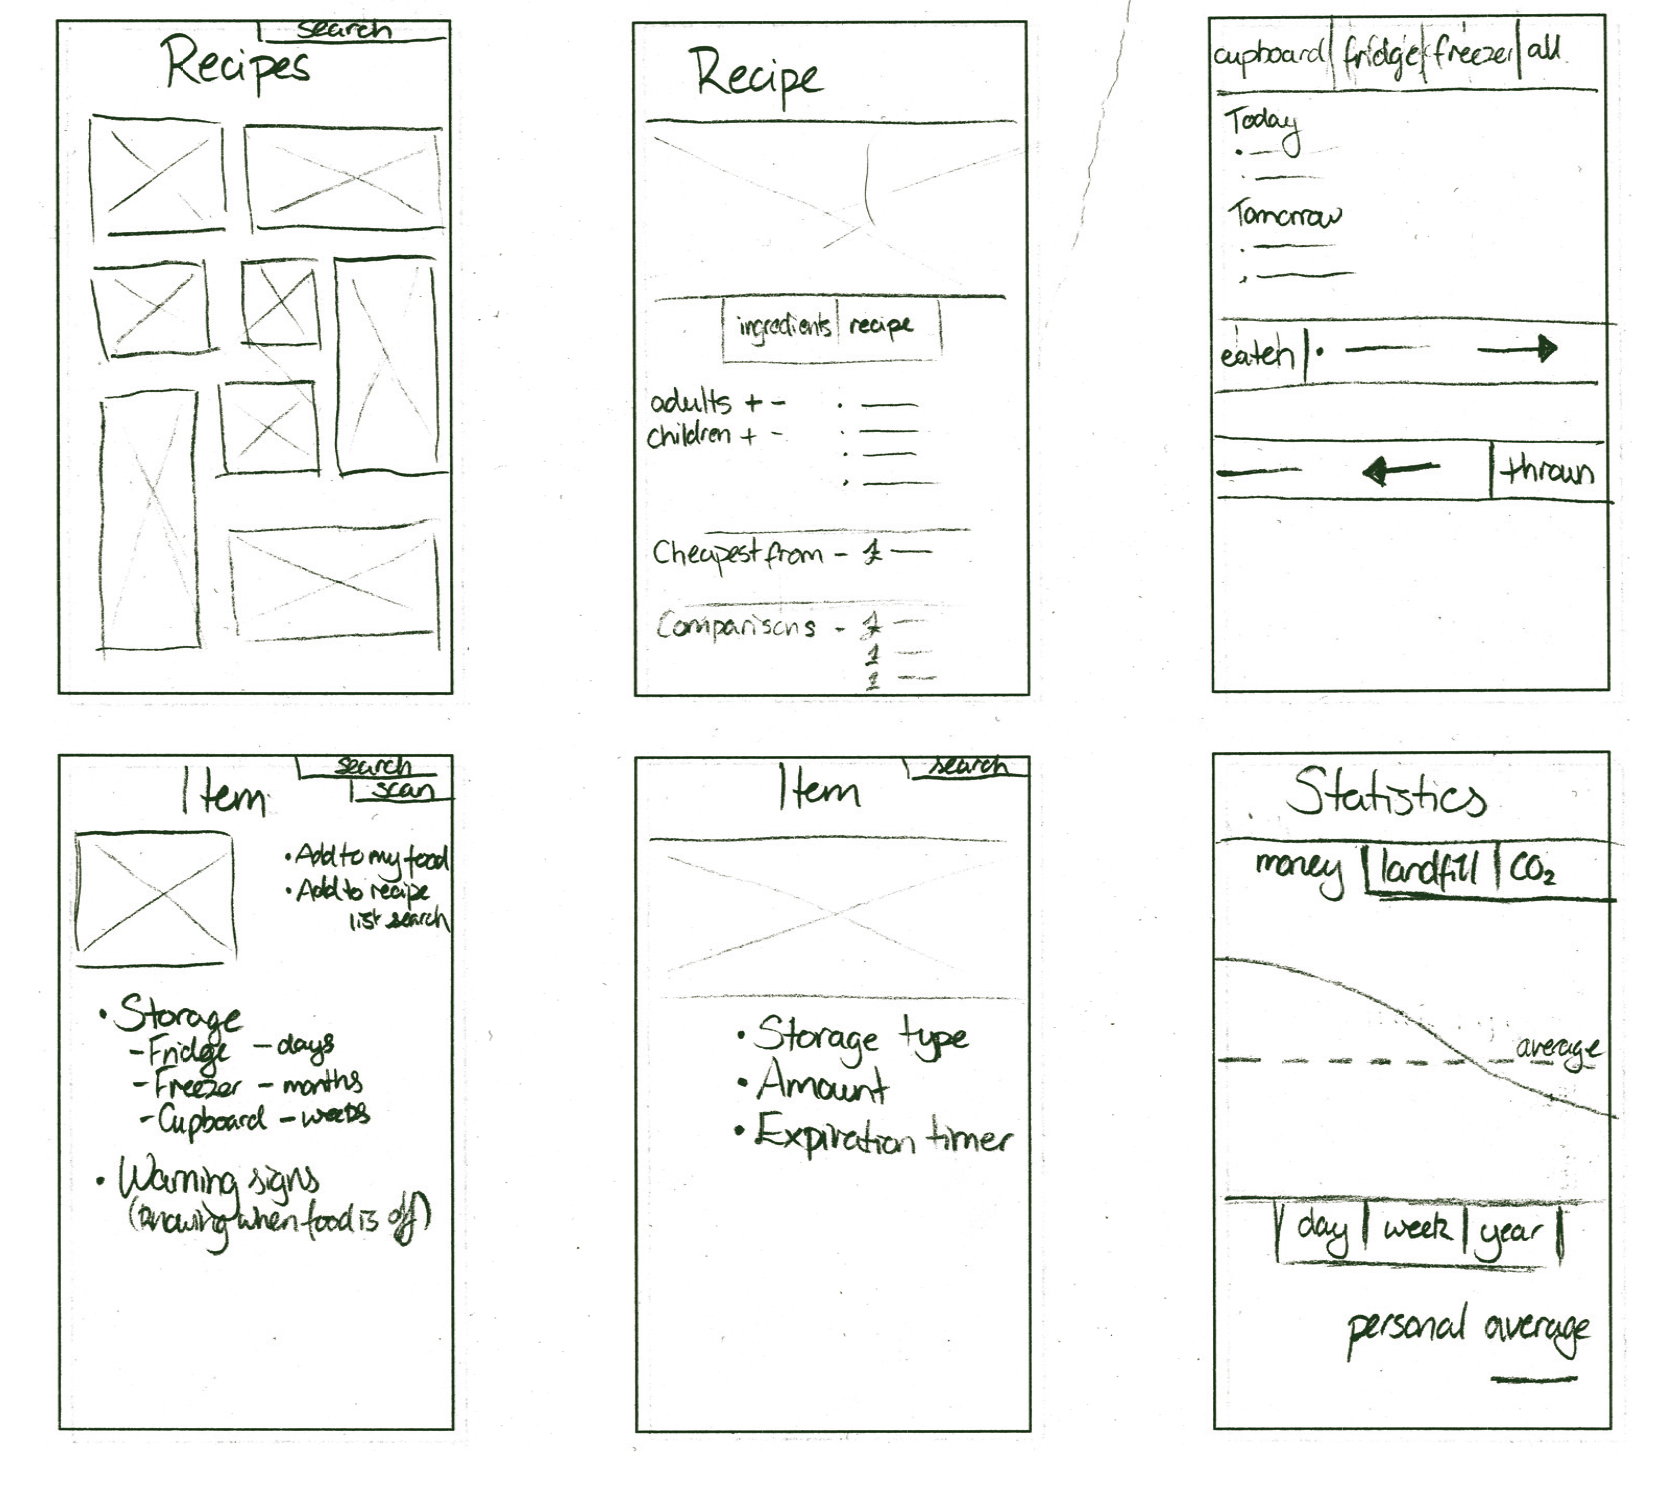 search
Recipes
Recipe
ingredients | recipe
adults + -
children + -
Cheapest from - 1
Comparisons - 1
1
1
cupboard | fridge | freezer | all
Today
Tomorrow
eaten
thrown
search
scan
Item
• Add to my food
• Add to recipe
list search
• Storage
- Fridge - days
- Freezer - months
- Cupboard - weeks
• Warning signs
(knowing when food is off)
search
Item
• Storage type
• Amount
• Expiration timer
Statistics
money | landfill | CO₂
average
day | week | year
personal average